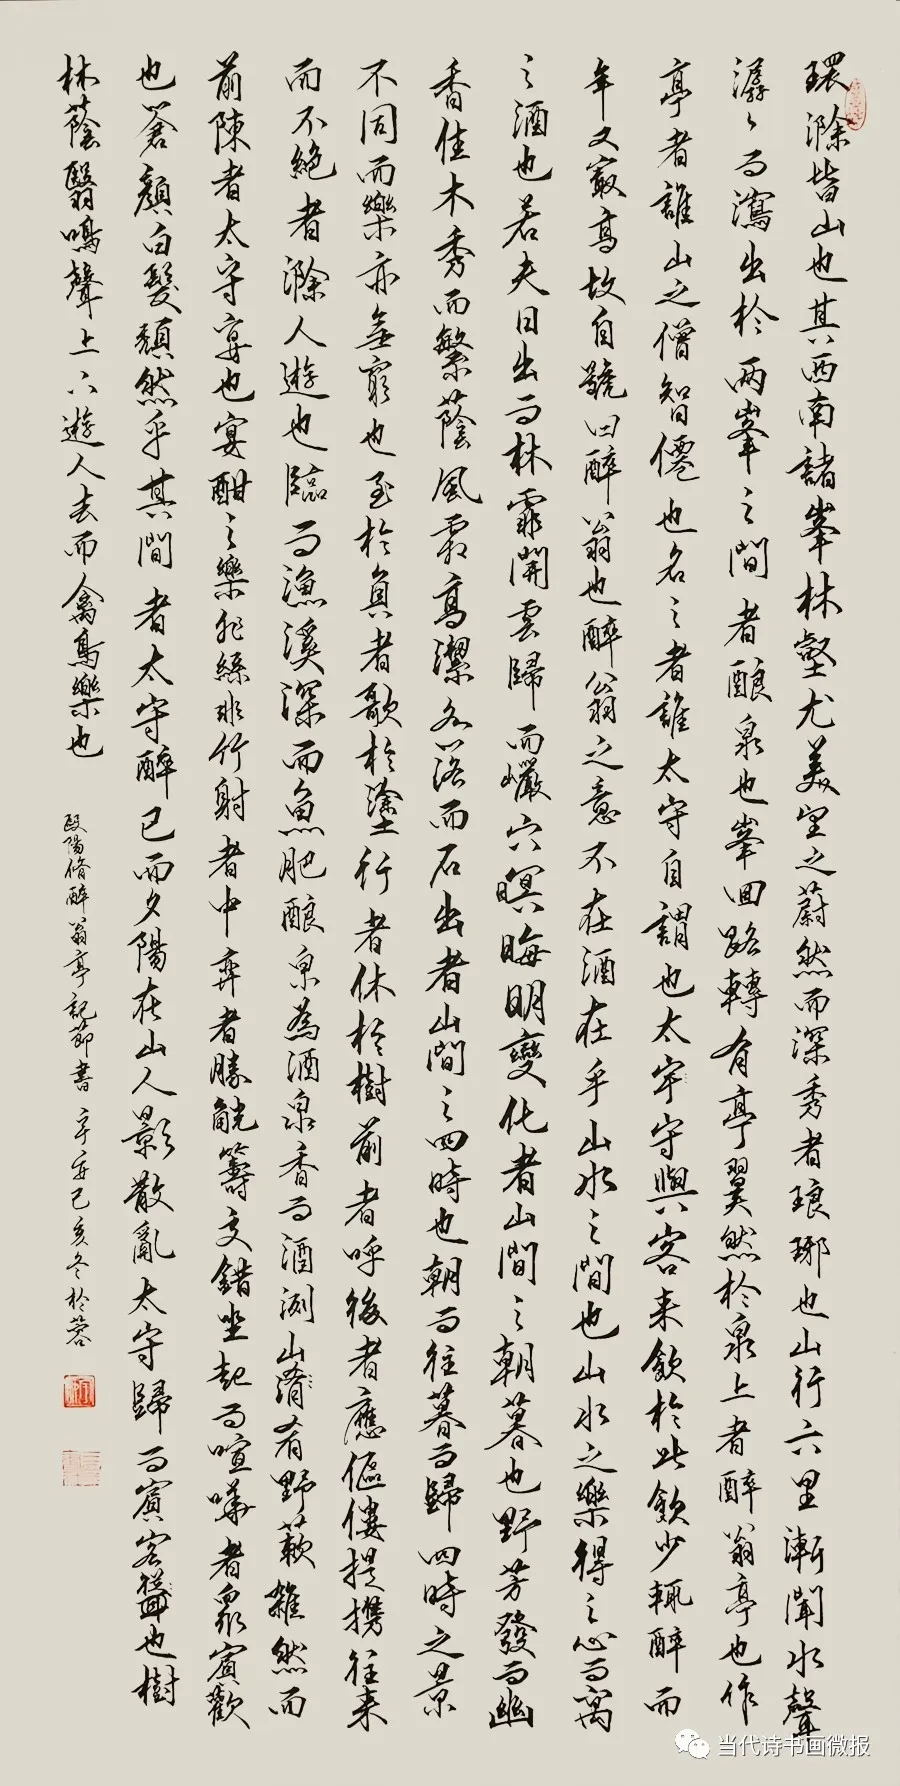 環滁皆山也其西南諸峯林壑尤美望之蔚然而深秀者琅琊也山行六里漸聞水聲
潺々而瀉出於两峯之間者酿泉也峯回路轉有亭翼然於泉上者醉翁亭也作
亭者誰山之僧智僊也名之者誰太守自謂也太守守與客来飲於此飲少輒醉而
年又最高故自號曰醉翁也醉翁之意不在酒在乎山水之間也山水之樂得之心而寓
之酒也若夫日出而林霏開雲歸而巖穴暝晦明變化者山間之朝暮也野芳發而幽
香佳木秀而繁蔭風霜高潔水落而石出者山間之四時也朝而往暮而歸四時之景
不同而樂亦無窮也至於負者歌於塗行者休於樹前者呼後者應傴僂提携往来
而不絶者滁人遊也臨而漁溪深而魚肥酿泉為酒泉香而酒洌山肴有野蔌雜然而
前陳者太守宴也宴酣之樂非絲非竹射者中弈者勝觥籌交錯坐起而喧嘩者衆賓歡
也蒼顔白髮頹然乎其間者太守醉已而夕陽在山人影散亂太守歸而賓客從也樹
林蔭翳鳴聲上下遊人去而禽鳥樂也
歐陽脩醉翁亭記節書 己亥冬於蓉
当代诗书画微报